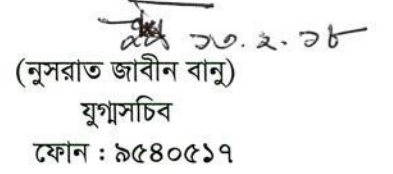 ১৩.২.১৮
(নুসরাত জাবীন বানু)
যুগ্মসচিব
ফোন : ৯৫৪০৫১৭